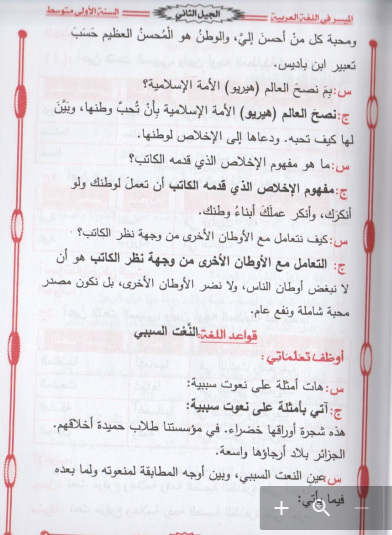 الميسر في اللغة العربية الجيل الثاني السنة الأولى متوسط
ومحبة كل منْ أحسنَ إليَّ، والوطنُ هو الْمُحسنُ العظيم حَسَبَ
تعبير ابن باديس.
س: بِمَ نصحَ العالم (هيريو) الأمة الإسلامية؟
ج: نصحَ العالم (هيريو) الأمة الإسلامية بِأنْ تُحبَّ وطنها، وبَيَّنَ
لها كيف تحبه. ودعاها إلى الإخلاص لوطنها.
س: ما هو مفهوم الإخلاص الذي قدمه الكاتب؟
ج: مفهوم الإخلاص الذي قدمه الكاتب أن تعملَ لوطنك ولو
أنكرَك، وأنكر عملَكَ أبناءُ وطنك.
س: كيف نتعامل مع الأوطان الأخرى من وجهة نظر الكاتب؟
ج: التعامل مع الأوطان الأخرى من وجهة نظر الكاتب هو أن
لا نبغض أوطان الناس، ولا نضر الأوطان الأخرى، بل نكون مصدر
محبة شاملة ونفع عام.
قواعد اللغة: النَّعْت السببي
أوظف تعلماتي:
س: هات أمثلة على نعوت سببية:
ج: آتي بأمثلة على نعوت سببية:
هذه شجرة أوراقها خضراء. في مؤسستنا طلاب حميدة أخلاقهم.
الجزائر بلاد أرجاؤها واسعة.
س: عين النعت السببي، وبين أوجه المطابقة لمنعوته ولما بعده
فيما يأتي: